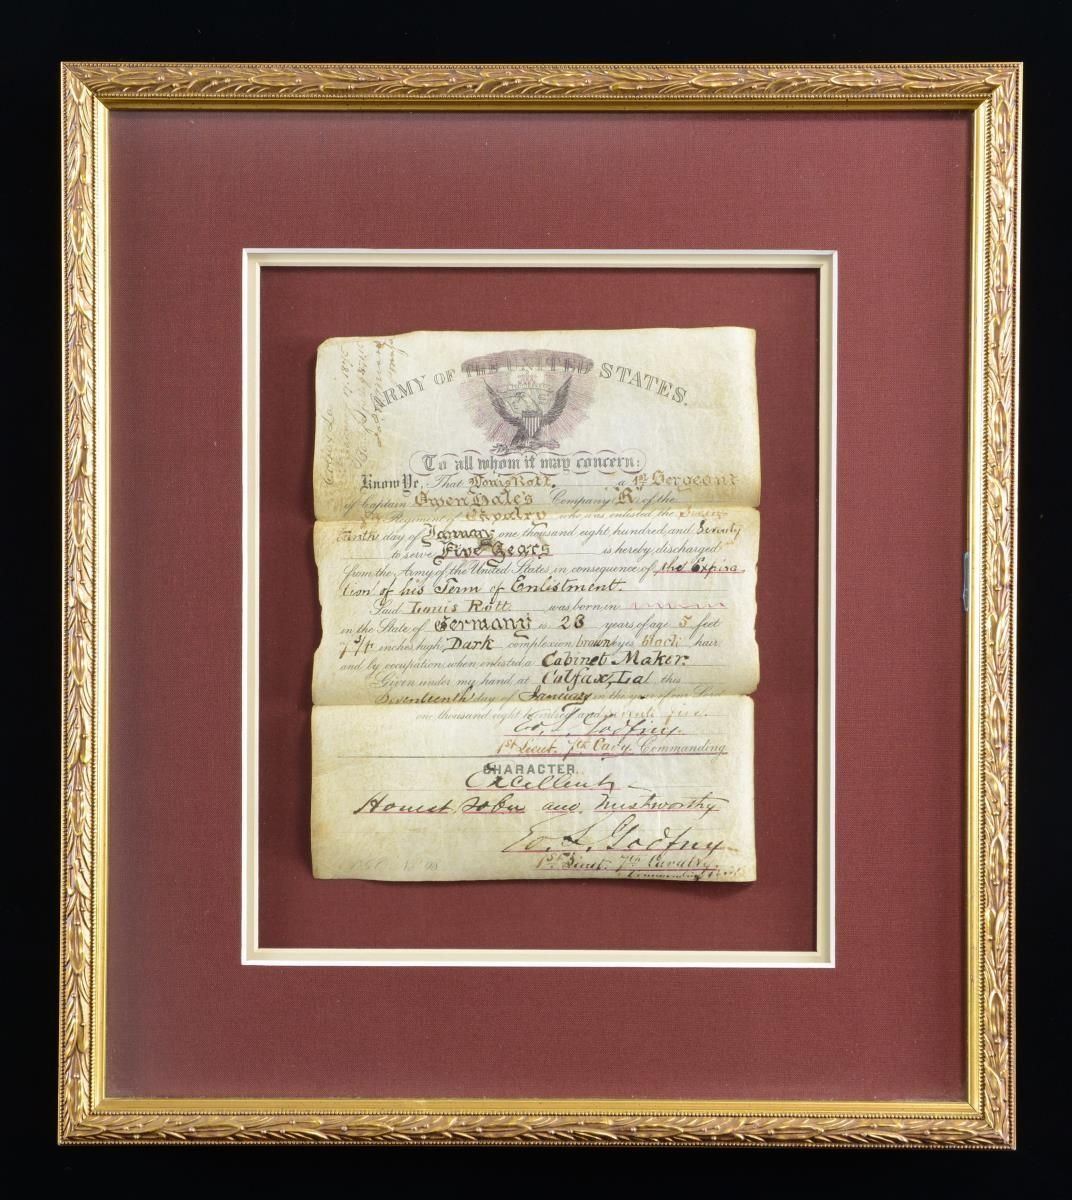 ARMY OF THE UNITED STATES.
To all whom it may concern:
Know Ye, That Louis Rott a 1st Sergeant
of Captain Owen Hale's Company "K" of the
Regiment of Cavalry who was enlisted the
day of January one thousand eight hundred and Seventy
to serve Five Years is hereby discharged
from the Army of the United States in consequence of the Expira
tion of his Term of Enlistment.
Said Louis Rott was born in
in the State of Germany is 28 years of age 5 feet
inches high, Dark complexion brown eyes black hair
and by occupation, when enlisted a Cabinet Maker.
Given under my hand at Colfax, La this
Seventeenth day of January in the year of our Lord
one thousand eight hundred and seventy five.
E. S. Godfrey
1st Lieut. 7th Cavy. Commanding
CHARACTER.
Excellent
Honest, sober and trustworthy
E. S. Godfrey
1st Lieut. 7th Cavalry.